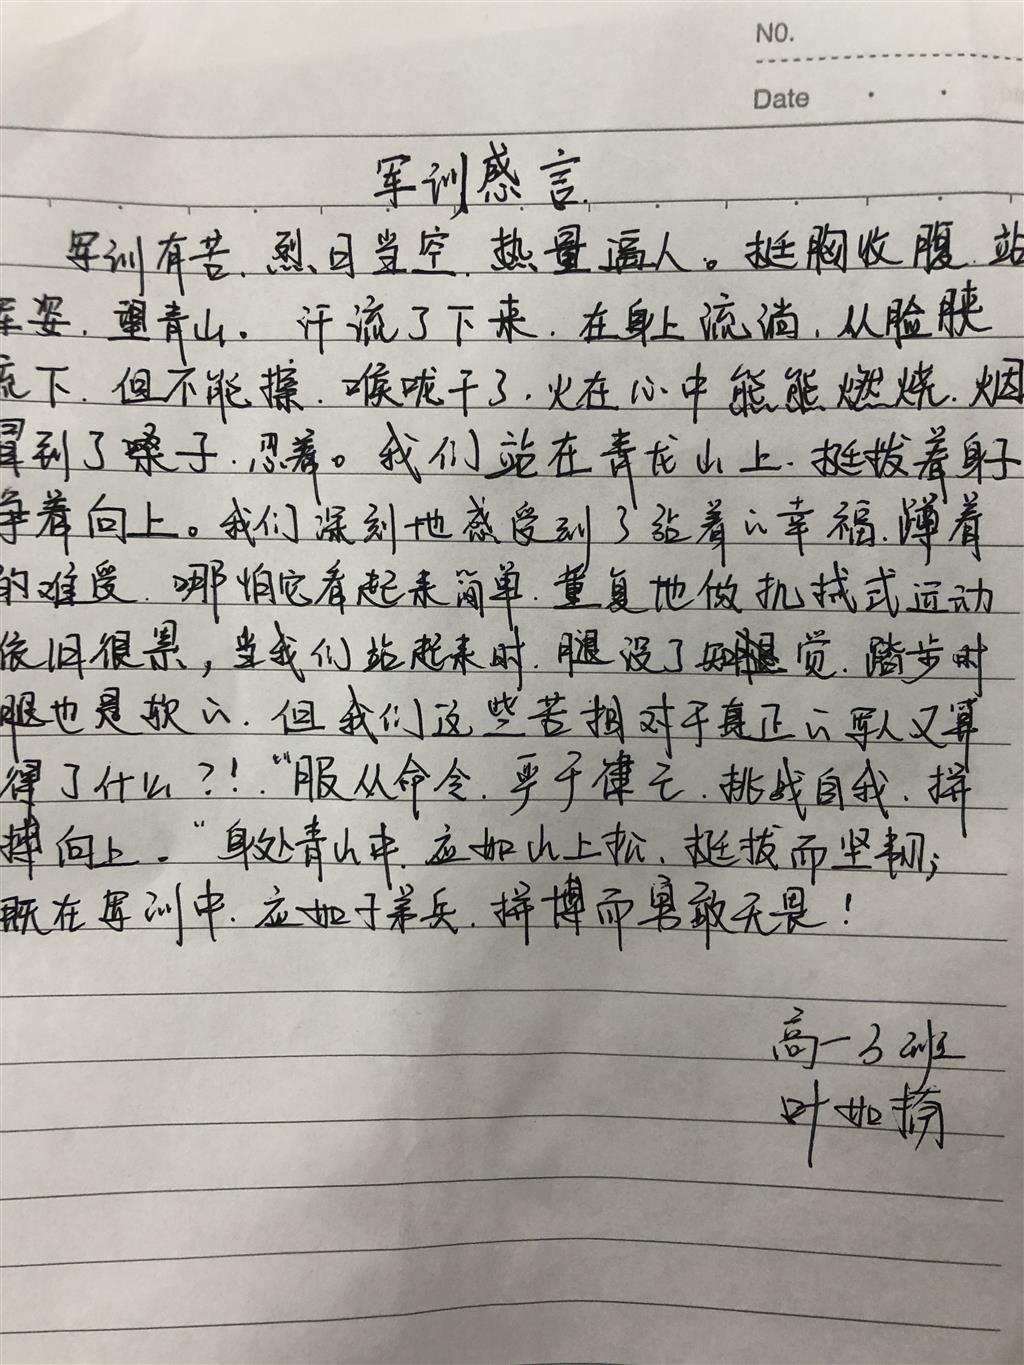 NO.
Date
军训感言
军训有苦,烈日当空,热量逼人。挺胸收腹,站
军姿,望青山。汗流了下来,在身上流淌,从脸颊
流下,但不能擦,喉咙干了,火在心中熊熊燃烧,烟
冒到了嗓子,忍着。我们站在青龙山上,挺拔着身子
争着向上。我们深刻地感受到了站着的幸福,蹲着
的难受,哪怕它看起来简单,重复地做机械式运动
依旧很累,当我们站起来时,腿没了知觉,踏步时
腿也是软的,但我们这些苦相对于真正的军人又算
得了什么?!“服从命令,严于律己,挑战自我,拼
搏向上。”身处青山中,应如山上松,挺拔而坚韧;
既在军训中,应如子弟兵,拼搏而勇敢无畏!
高一3班
叶如